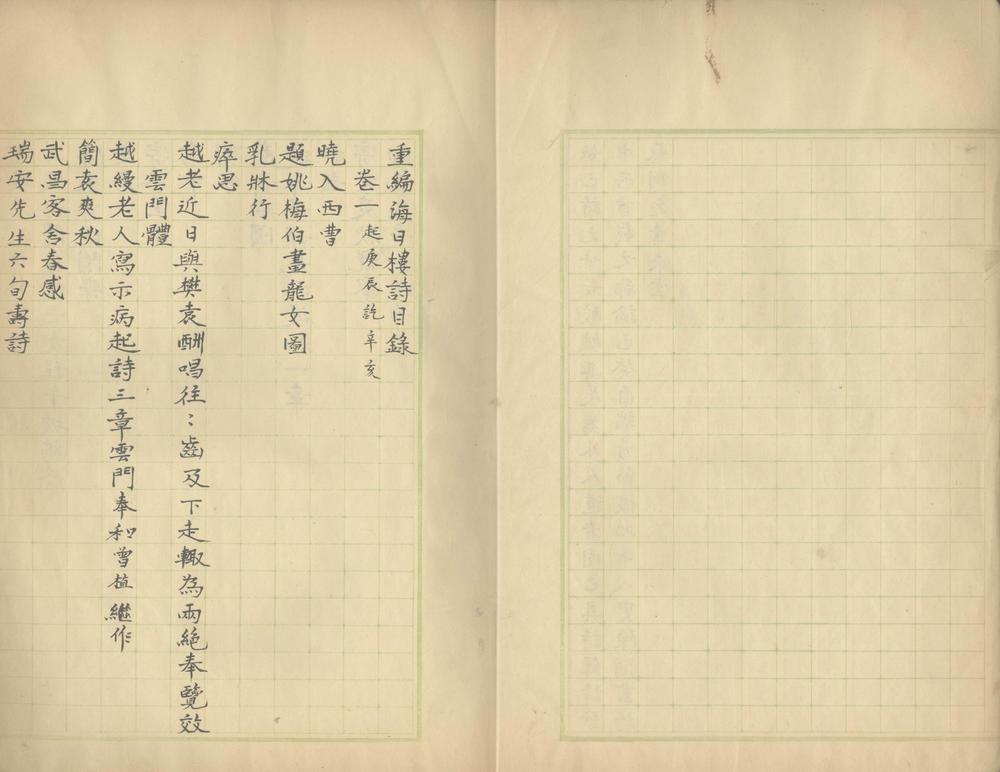 重編海日樓詩目錄
卷一 起庚辰訖辛亥
曉入西曹
題姚梅伯畫龍女圖
乳牀行
瘁思
越老近日與樊袁酬唱往〻齒及下走輙為兩絶奉覽效
雲門體
越縵老人寫示病起詩三章雲門奉和曾植繼作
簡袁爽秋
武昌客舍春感
瑞安先生六旬壽詩